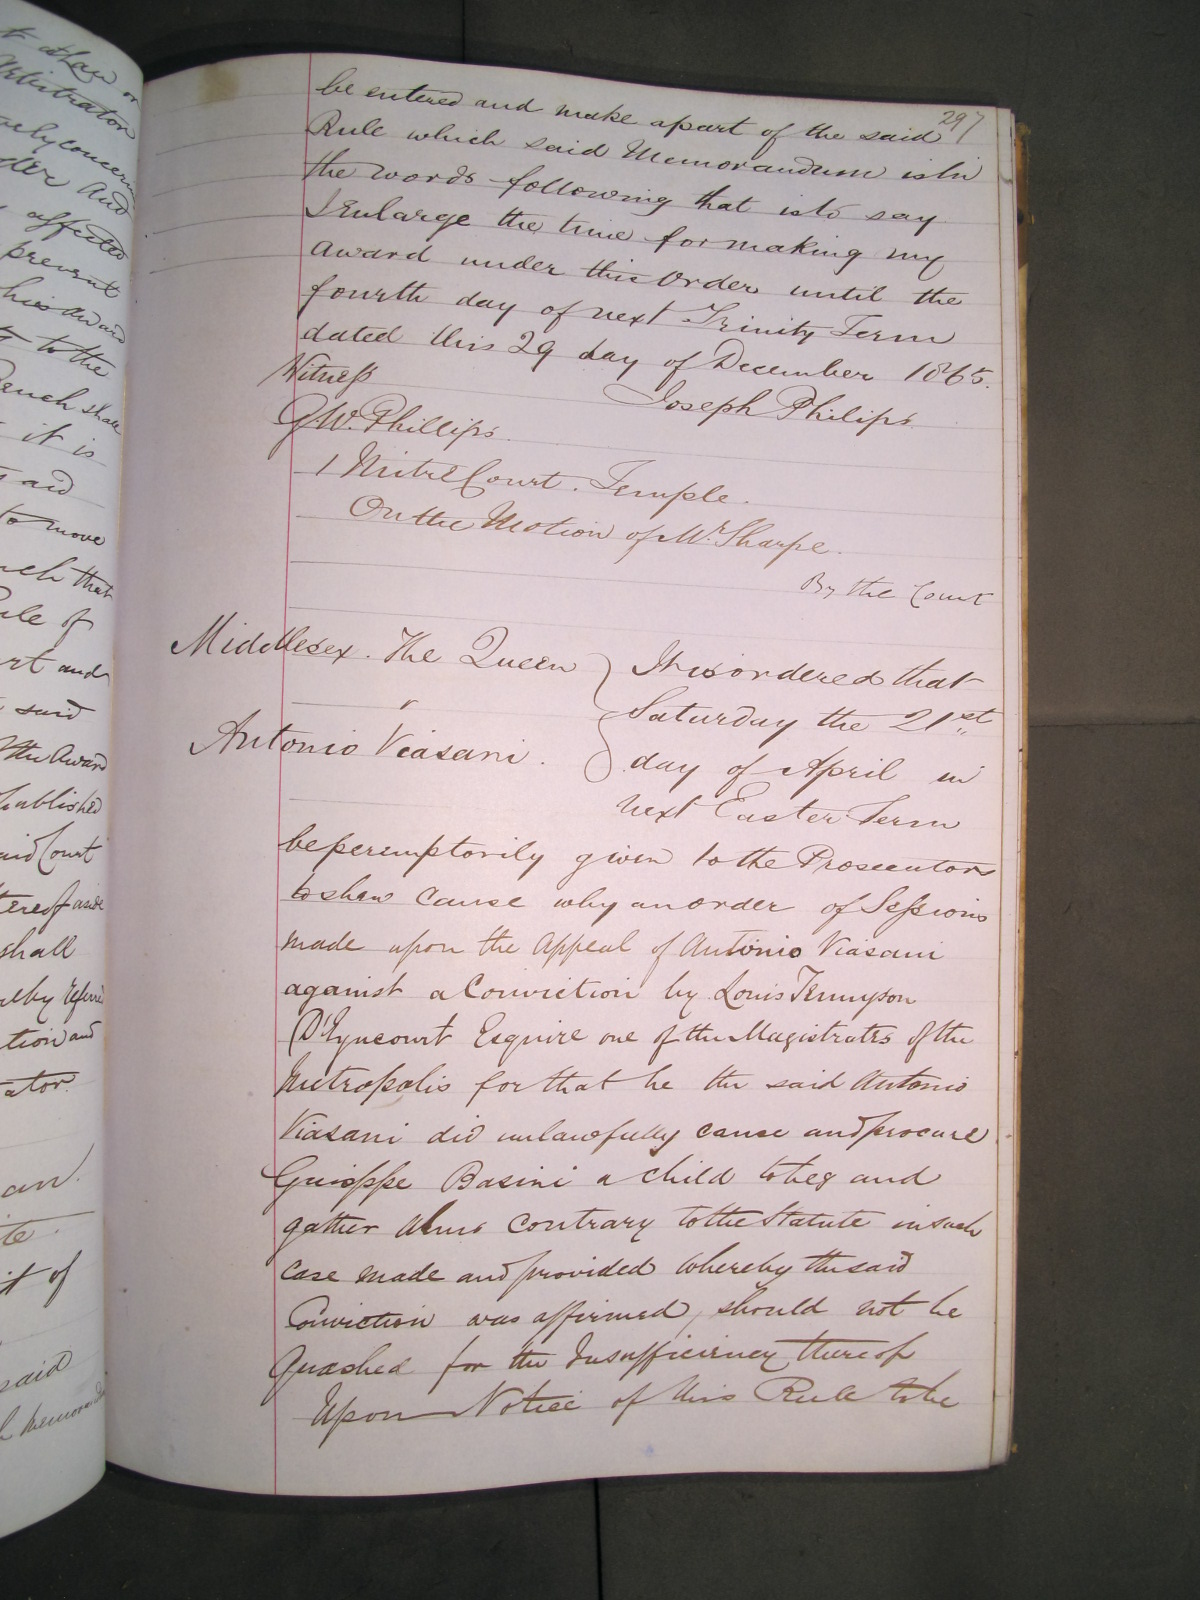 297
be entered and make apart of the said
Rule which said Memorandum is in
the words following that is to say
I Enlarge the time for making my
award under this Order until the
fourth day of next Trinity Term
dated this 29 day of December 1865.
Witness
Joseph Philips
G W. Phillips.
1 Mitre Court. Temple.
On the Motion of Mr. Sharpe.
By the Court
Middlesex. The Queen
v
Antonio Viasani.
It is ordered that
Saturday the 21st
day of April in
next Easter Term
be peremptorily given to the Prosecutors
to shew Cause why an order of Sessions
made upon the Appeal of Antonio Viasani
against a Conviction by Louis Tennyson
D'Eyncourt Esquire one of the Magistrates of the
Metropolis for that he the said Antonio
Viasani did unlawfully cause and procure
Guisppe Basini a child to beg and
gather Alms Contrary to the Statute in such
case made and provided whereby the said
Conviction was affirmed, should not be
Quashed for the Insufficiency thereof
Upon Notice of this Rule to be
t than or
Arbitrator
ely concern
der And
affected
prevent
his award
to the
Bench shall
it is
said
to move
ch that
Rule of
rt and
said
the Award
published
said Court
thereof aside
shall
eby referred
tion and
ator
an.
te.
it of
said
h memoranda